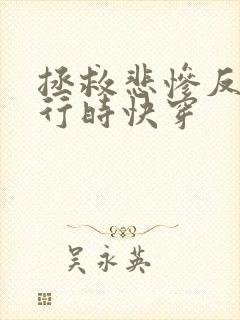 拯救悲惨反
行时快穿
吴永英